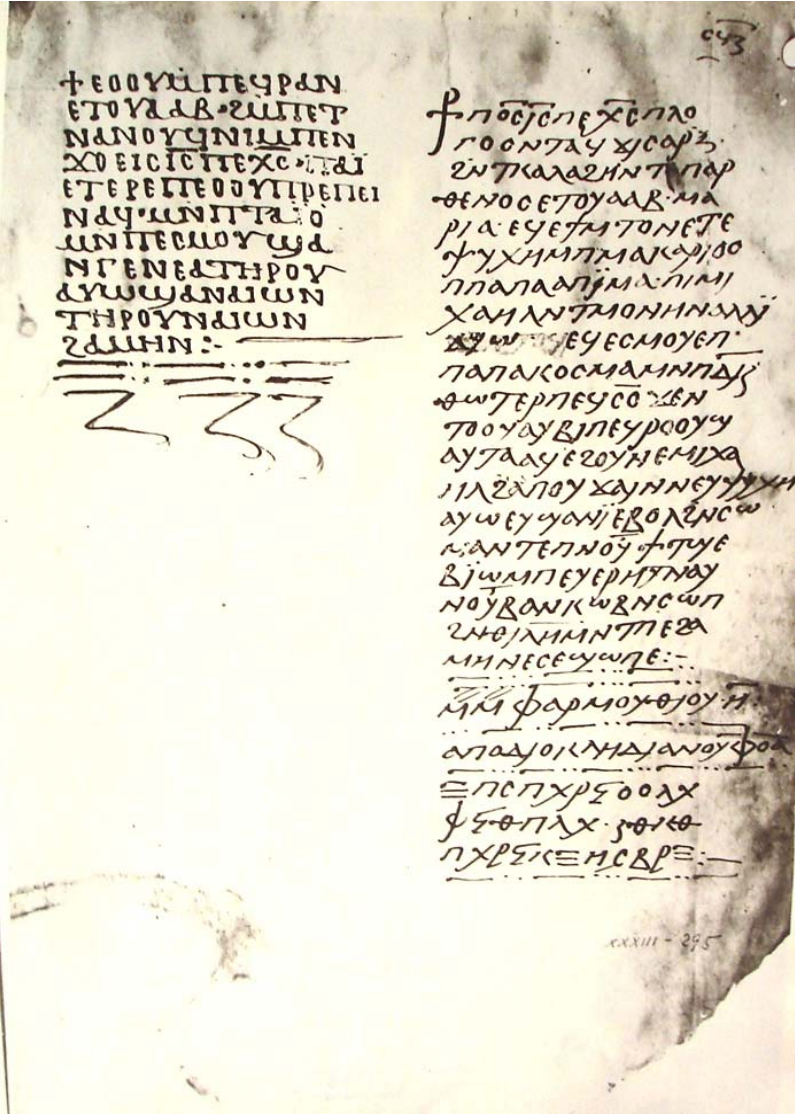 ϯⲉⲟⲟⲩⲙ̄ⲡⲉϥⲣⲁⲛ
ⲉⲧⲟⲩⲁⲁⲃ·ϩⲙ̄ⲡⲉⲧ
ⲛⲁⲛⲟⲩϥⲛⲓⲙⲡⲉⲛ
ϫⲟⲉⲓⲥⲓ̅ⲥ̅ⲡⲉⲭ̅ⲥ̅·ⲡⲁⲓ̈
ⲉⲧⲉⲣⲉⲡⲉⲟⲟⲩⲡⲣⲉⲡⲉⲓ
ⲛⲁϥ·ⲙⲛ̄ⲡⲧⲁⲓ̈ⲟ
ⲙⲛ̄ⲡⲉⲥⲙⲟⲩϣⲁ
ⲛⲅⲉⲛⲉⲁⲧⲏⲣⲟⲩ
ⲁⲩⲱϣⲁⲛⲁⲓⲱⲛ
ⲧⲏⲣⲟⲩⲛⲁⲓⲱⲛ
ϩⲁⲙⲏⲛ:-
ⲥϥⲍ
⳨ⲡⲟ̅ⲥ̅ⲓ̅ⲥ̅ⲡⲉⲭ̅ⲥ̅ⲡⲗⲟ
ⲅⲟⲥⲛⲧⲁϥϫⲓⲥⲁⲣⲝ
ϩⲛⲧⲕⲁⲗⲁϩⲏⲛⲧⲡⲁⲣ
ⲑⲉⲛⲟⲥⲉⲧⲟⲩⲁⲁⲃ·ⲙⲁ
ⲣⲓⲁ·ⲉϥⲉϯⲙⲧⲟⲛⲉⲧⲉ
ⲯⲩⲭⲏⲙⲡⲙⲁⲕⲁⲣⲓⲟⲥ
ⲡⲡⲁⲡⲁⲁⲡⲓⲙⲁ·ⲡⲓⲙⲓ
ⲭⲁⲏⲗⲛⲧⲙⲟⲛⲏⲛⲁⲗⲗⲓ̈
ⲉϥⲉⲥⲙⲟⲩⲉⲡ
ⲡⲁⲡⲁⲕⲟⲥⲙⲁⲙⲛⲡⲇⲓⲁⲕ
ⲑⲱⲧⲉⲣⲡⲉϥⲥⲟⲛϫⲉⲛ
ⲧⲟⲟⲩⲁⲩϥⲓⲡⲉϥⲣⲟⲟⲩϣ
ⲁⲩⲧⲁⲁϥⲉϩⲟⲩⲛⲉⲙⲓⲭⲁ
ⲏⲗϩⲁⲡⲟⲩϫⲁⲓⲛⲛⲉⲩⲯⲩⲭⲏ
ⲁⲩⲱⲉⲩϣⲁⲛⲓ̈ⲉⲃⲟⲗϩⲛⲥⲱ
ⲙⲁⲛⲧⲉⲡⲛⲟⲩϯⲧϣⲉ
ⲃⲓⲱⲙⲡⲉⲩⲉⲣⲏⲧⲛⲁⲩ
ⲛⲟⲩⲃⲁⲛⲕⲱⲃⲛⲥⲱⲡ
ϩⲛⲑⲓⲗⲏⲙⲛⲧⲡⲉϩⲁ
ⲙⲏⲛⲉⲥⲉϣⲱⲡⲉ:-
ⲙⲙⲫⲁⲣⲙⲟⲩⲑⲓⲟⲩ·ⲏ̅·
ⲁⲡⲟⲇⲓⲟⲕⲗⲏⲇⲓⲁⲛⲟⲩⲫⲟⲁ
xxxiii - 295